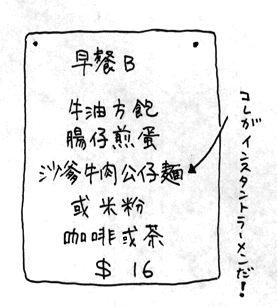 早餐B
牛油方飽
腸仔煎蛋
沙爹牛肉公仔麵
或米粉
咖啡或茶
$ 16
コレがインスタントラーメンだ！